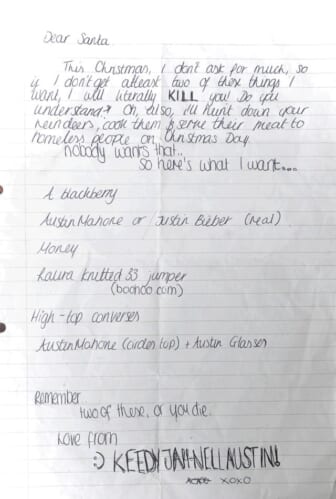 Dear Santa
This Christmas, I don't ask for much, so
if I don't get atleast two of these things I
want, I will literally KILL you! Do you
understand? Oh, also, i'll hunt down your
reindeers, cook them & serve their meat to
homeless people on Christmas Day.
nobody wants that..
so here's what I want...
A blackberry
Austin Mahone or Justin Bieber (real)
Money
Laura knitted 33 jumper
(boohoo.com)
High-top converses
Austin Mahone (order top) + Austin Glasses
Remember
two of these, or you die.
Love from
:) AUSTIN!
xoxo